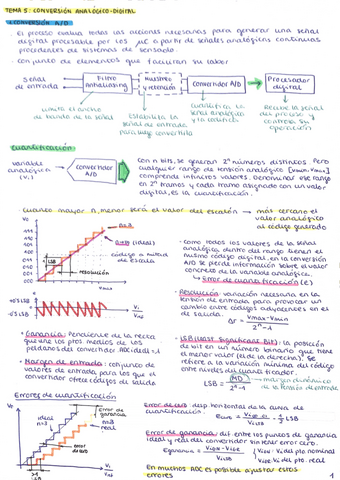 TEMA 5: CONVERSIÓN ANALÓGICO-DIGITAL
CONVERSIÓN A/D
- El proceso evalúa todas las acciones necesarias para generar una señal
digital procesable por los μC a partir de señales analógicas continuas
procedentes de sistemas de sensado.
- Conjunto de elementos que facilitan su labor
señal
de entrada
Filtro
Antialiasing
Muestreo
y retención
Convertidor A/D
Procesador
digital
limita el ancho
de banda de la señal
Estabiliza la
señal de entrada
para su convertida
cuantifica la
señal analógica
y la codifica
Recibe la señal
del proceso y
controla su
operación
Cuantificación
variable
analógica
(V1)
convertidor
A/D
con n bits, se generan 2^n números distintos. Pero
cualquier rango de tensión analógica [Vmín, Vmáx]
comprende infinitos valores. Denominar ese rango
en 2^n tramos y cada tramo asignado con un valor
digital, es la cuantificación.
Cuanto mayor n, menor será el valor del escalón → más cercano el
valor analógico
al código generado
n=∞
n=3 (ideal)
código a mitad
de escala
LSB
resolución
111
110
101
100
011
010
001
000
- como todos los valores de la señal
analógica dentro del rango tienen el
mismo código digital, en la conversión
A/D se pierde información sobre el valor
concreto de la variable analógica.
↳ Error de cuantificación (e)
- Resolución: variación necesaria en la
tensión de entrada para provocar un
cambio entre códigos adyacentes en el
de salida.
Δr = Vmax-Vmin / 2^n-1
+0'5 LSB
-0'5 LSB
- Ganancia: Pendiente de la recta
que une los ptos medios de los
peldaños del convertidor. ADC ideal=1
- Margen de entrada: conjunto de
valores de entrada para los que el
convertidor ofrece códigos de salida
- LSB (Least Significant Bit): la posición
de bit en un número binario que tiene
el menor valor (el de la derecha). Se
refiere a la variación mínima del código
entre niveles del cuantificador.
LSB = MD / 2^n-1 → margen dinámico
de la tensión de entrada
Errores de cuantificación
ideal
n=3
real
n=3
error de
ganancia
error
de LSB
Error de LSB: desp horizontal de la curva de
cuantificación.
Error de ganancia: dif. entre los puntos de ganancia
ideal y real del convertidor sin tener error cero.
En muchos ADC es posible ajustar estos
errores
1